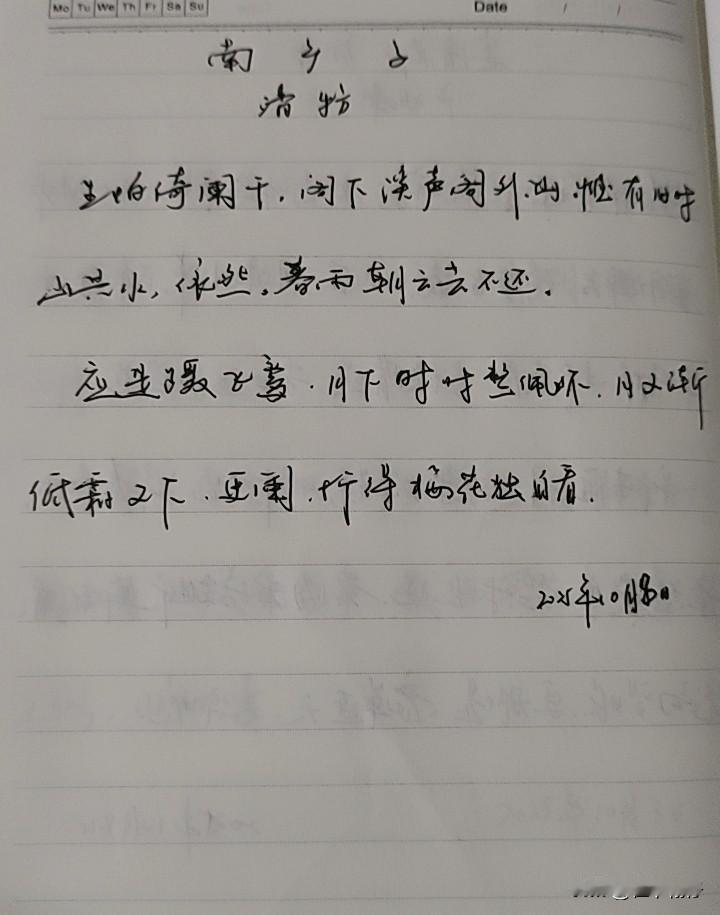 Mo Tu We Th Fr Sa Su
Date / /
南乡子
潘牥
生怕倚阑干，阁下溪声阁外山，惟有旧时
山共水，依然。暮雨朝云去不还。
应是蹑飞鸾，月下时时整佩环，月又渐
低霜又下，更阑，折得梅花独自看。
2025年10月8日